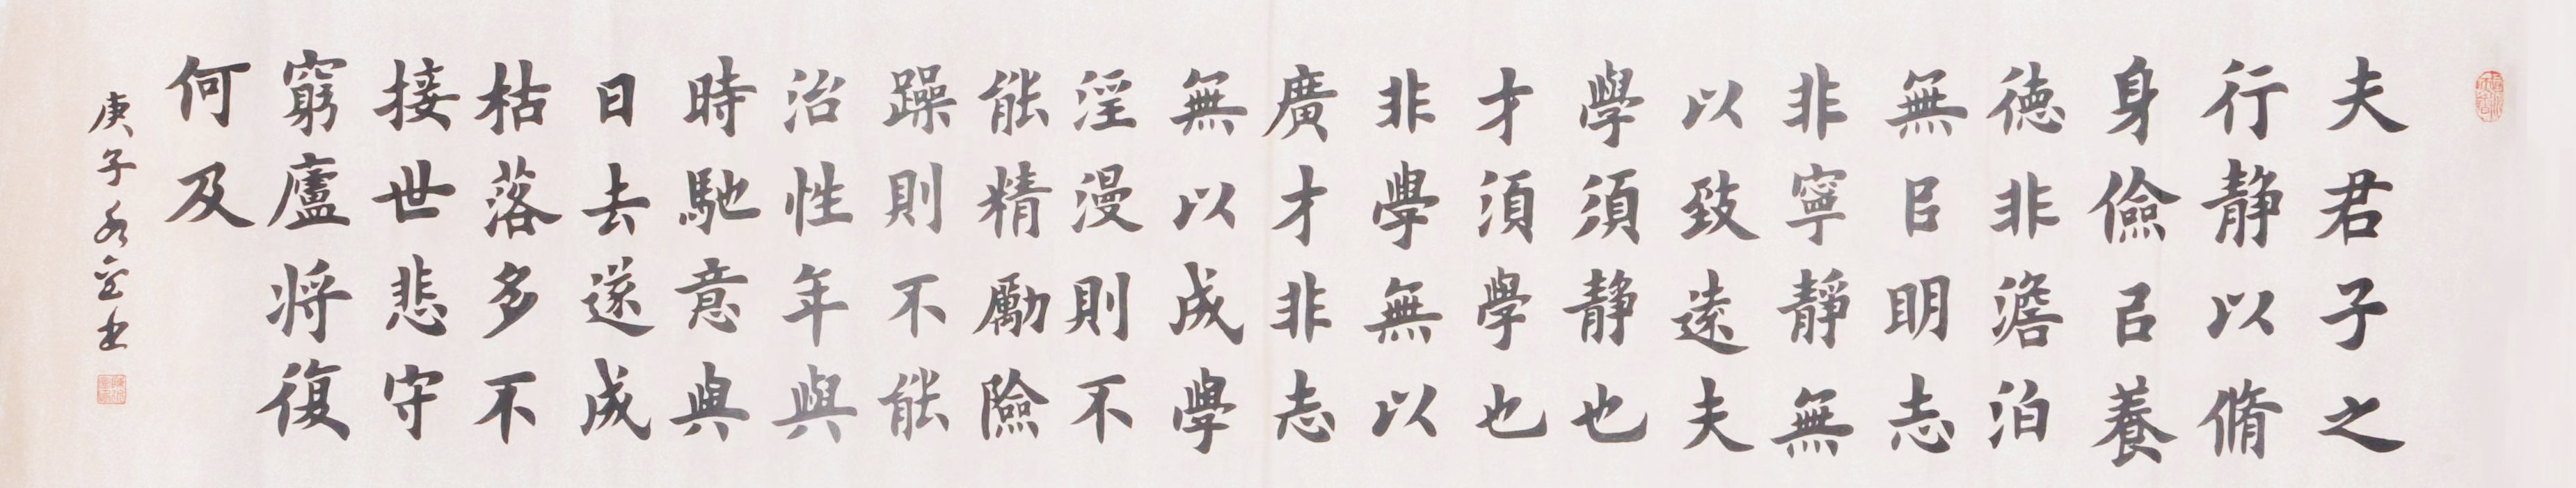 夫君子之
行静以脩
身儉㠯養
德非澹泊
無㠯明志
非寧靜無
以致遠夫
學須靜也
才須學也
非學無以
廣才非志
無以成學
淫漫則不
能精勵險
躁則不能
治性年與
時馳意與
日去遂成
枯落多不
接世悲守
窮廬將復
何及
庚子